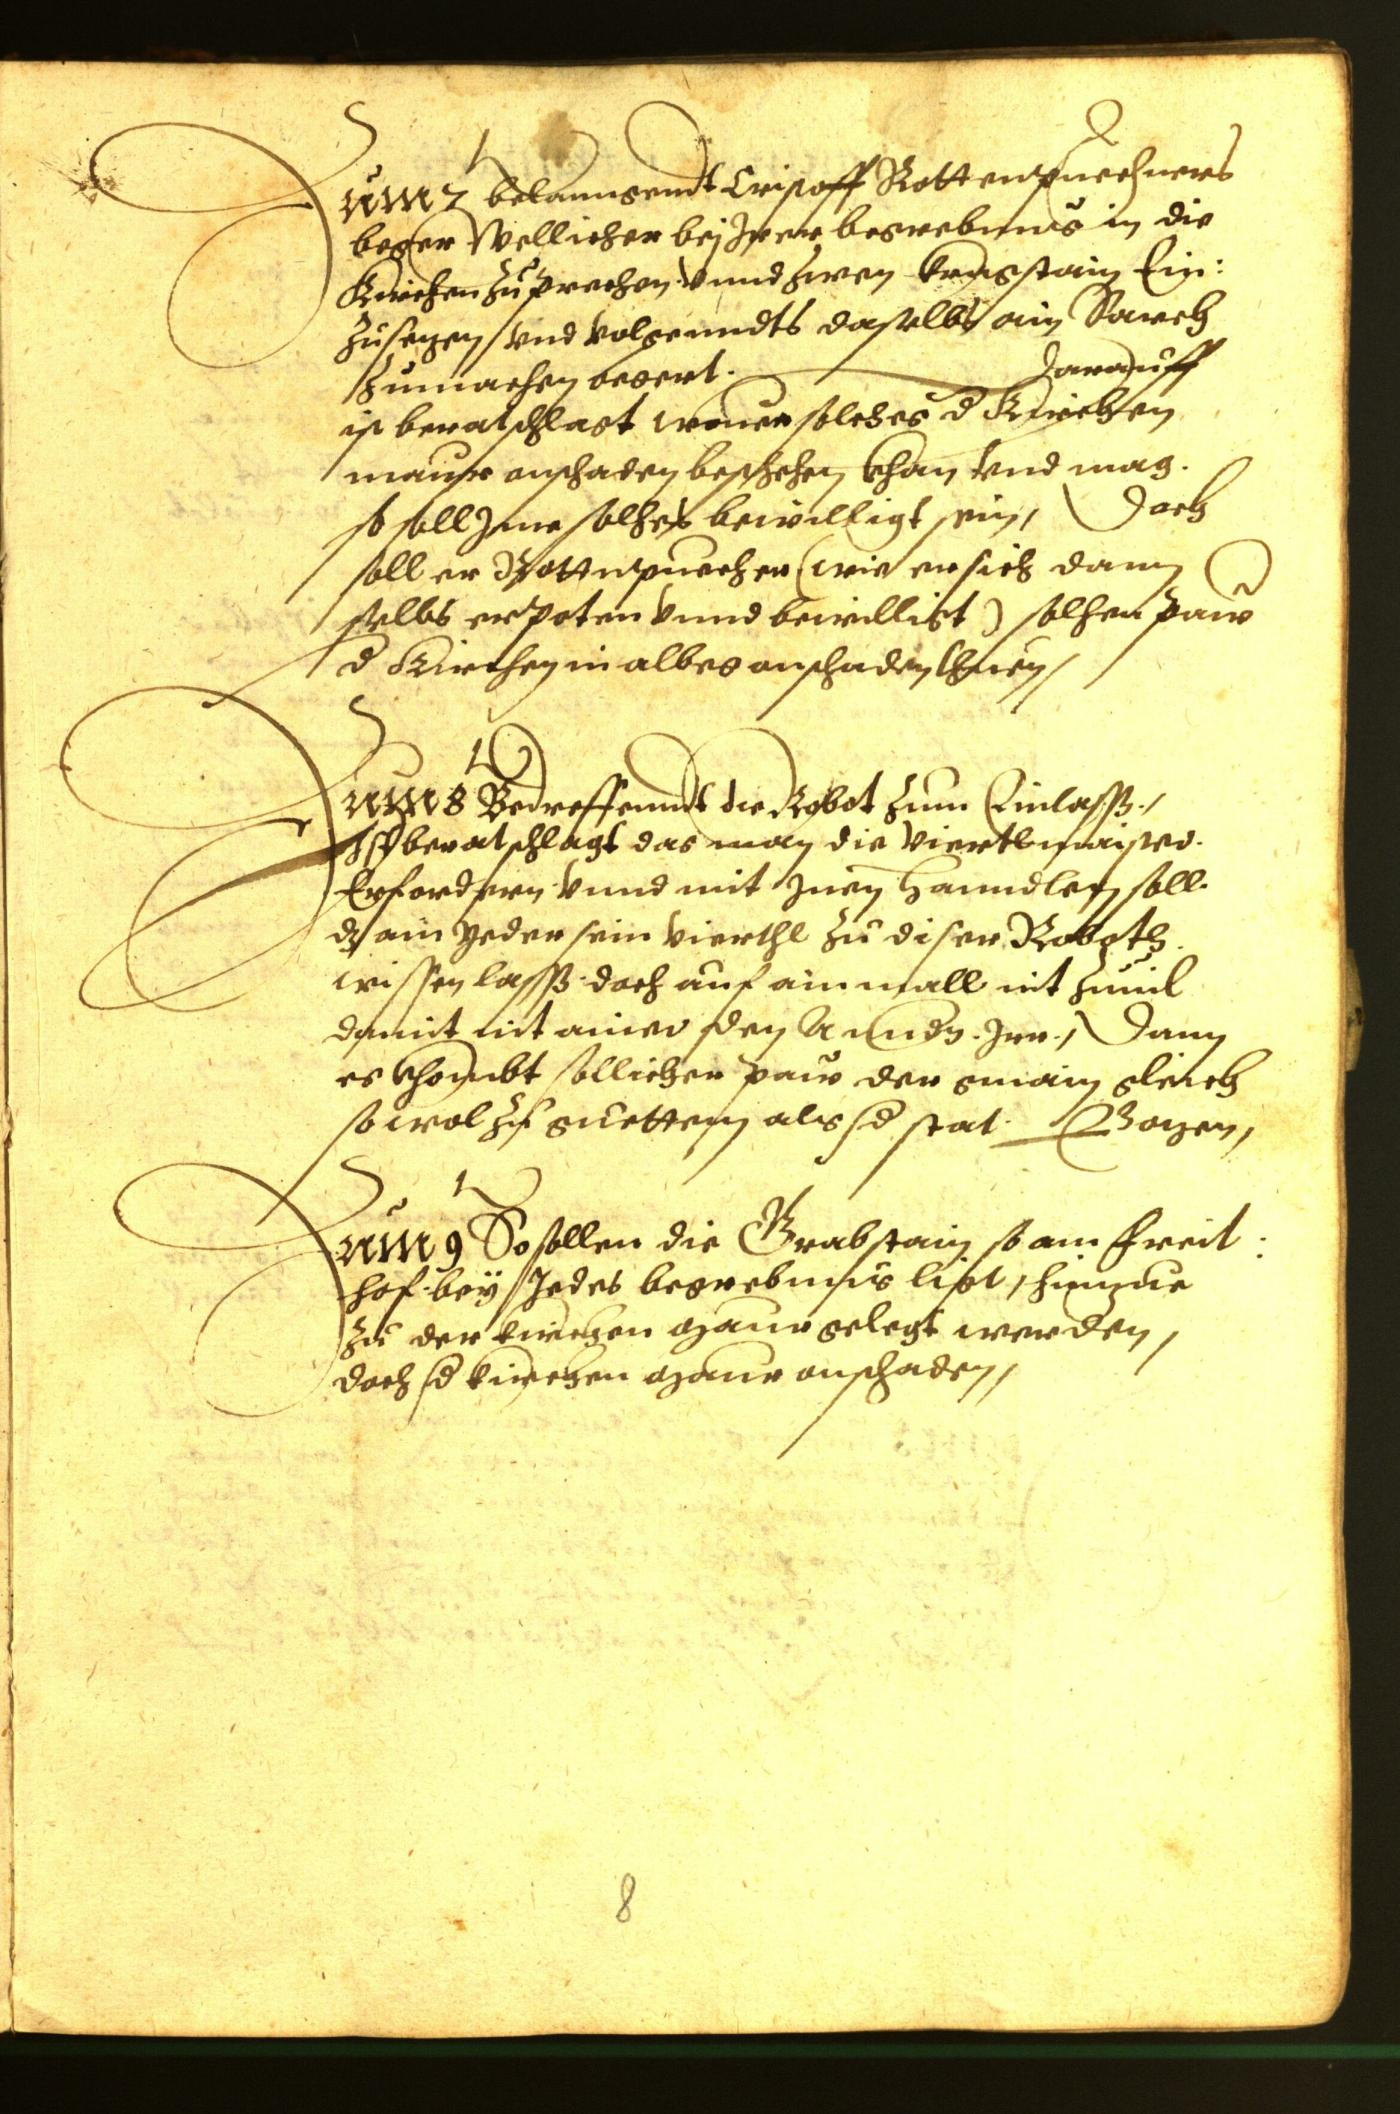 Zum 7 belanngendt Cristoff Rottenpuechners
beger Wellicher bej Irer begrebnus in die
Kirchen zu prechen vnnd zwen kragstain Ein:
zusezen vnd volgenndts daselbs ain Sarch
zumachen begert. Darauff
ist beratschlagt wouer solches d Kirchen
maur onschaden beschehen khan vnd mag.
so soll Ime solhes bewilligt sein, Doch
soll er Rottnpuecher (wie er sich dann
selbs erpoten vnnd bewilligt) solhen paw
d Kirchen in albeg onschaden thuen,
Zum 8 Bedreffenndt die Robot zum Einlasß,
Ist beratschlagt das man die Viertlmaister
Erfordern vnnd mit Inen Hanndlen soll
dz ain yeder sein vierthl zu diser Roboth
wissen lasß doch auf ainmall nit zuuil
damit nit ainer den Anndn Irr, Dann
es khombt sollicher paw der gmain gleich
so wol zu guettem als d stat Bozen,
Zum 9 So sollen die Grabstain so am freit:
hof bey Jedes begrebnus ligt, hinzue
zu der kirchen maur gelegt werden,
doch d kirchen maur onschaden,
8